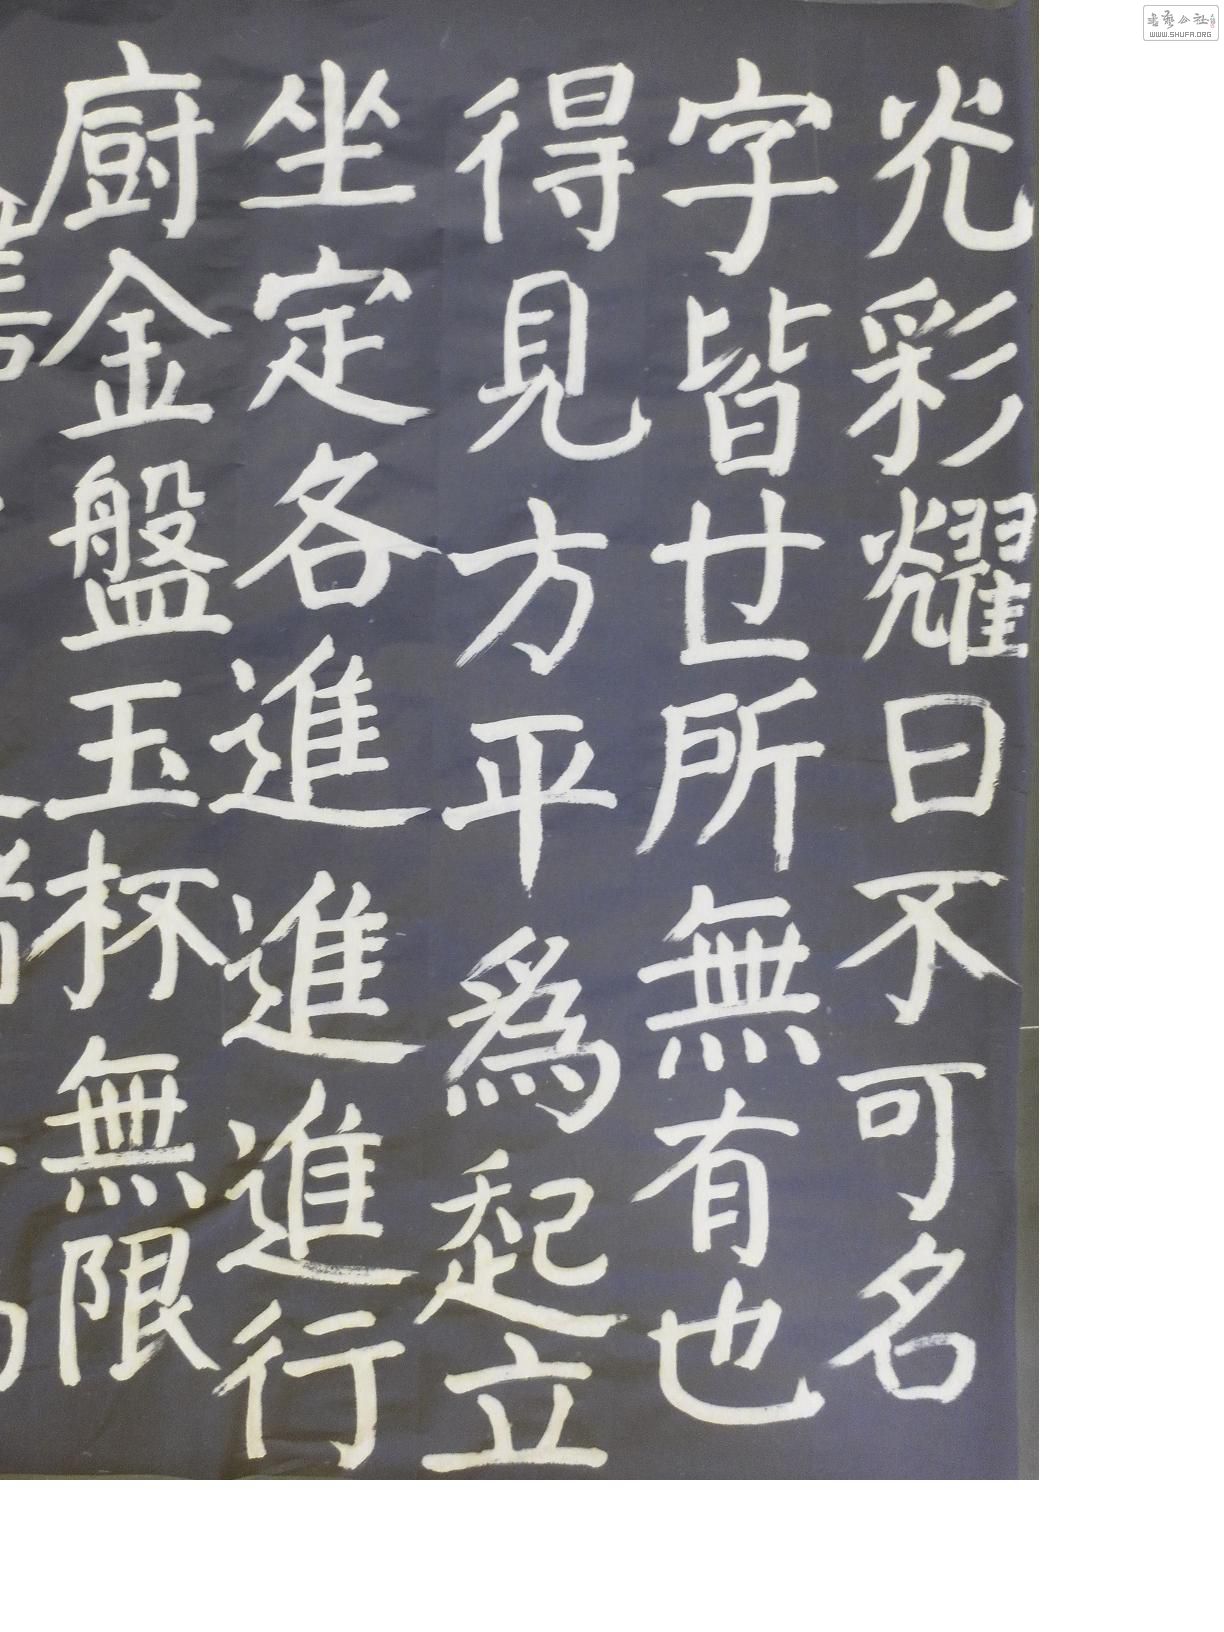 光彩耀日不可名
字皆世所無有也
得見方平為起立
坐定各進進進行
廚金盤玉杯無限
書艺公社
WWW.SHUFA.ORG